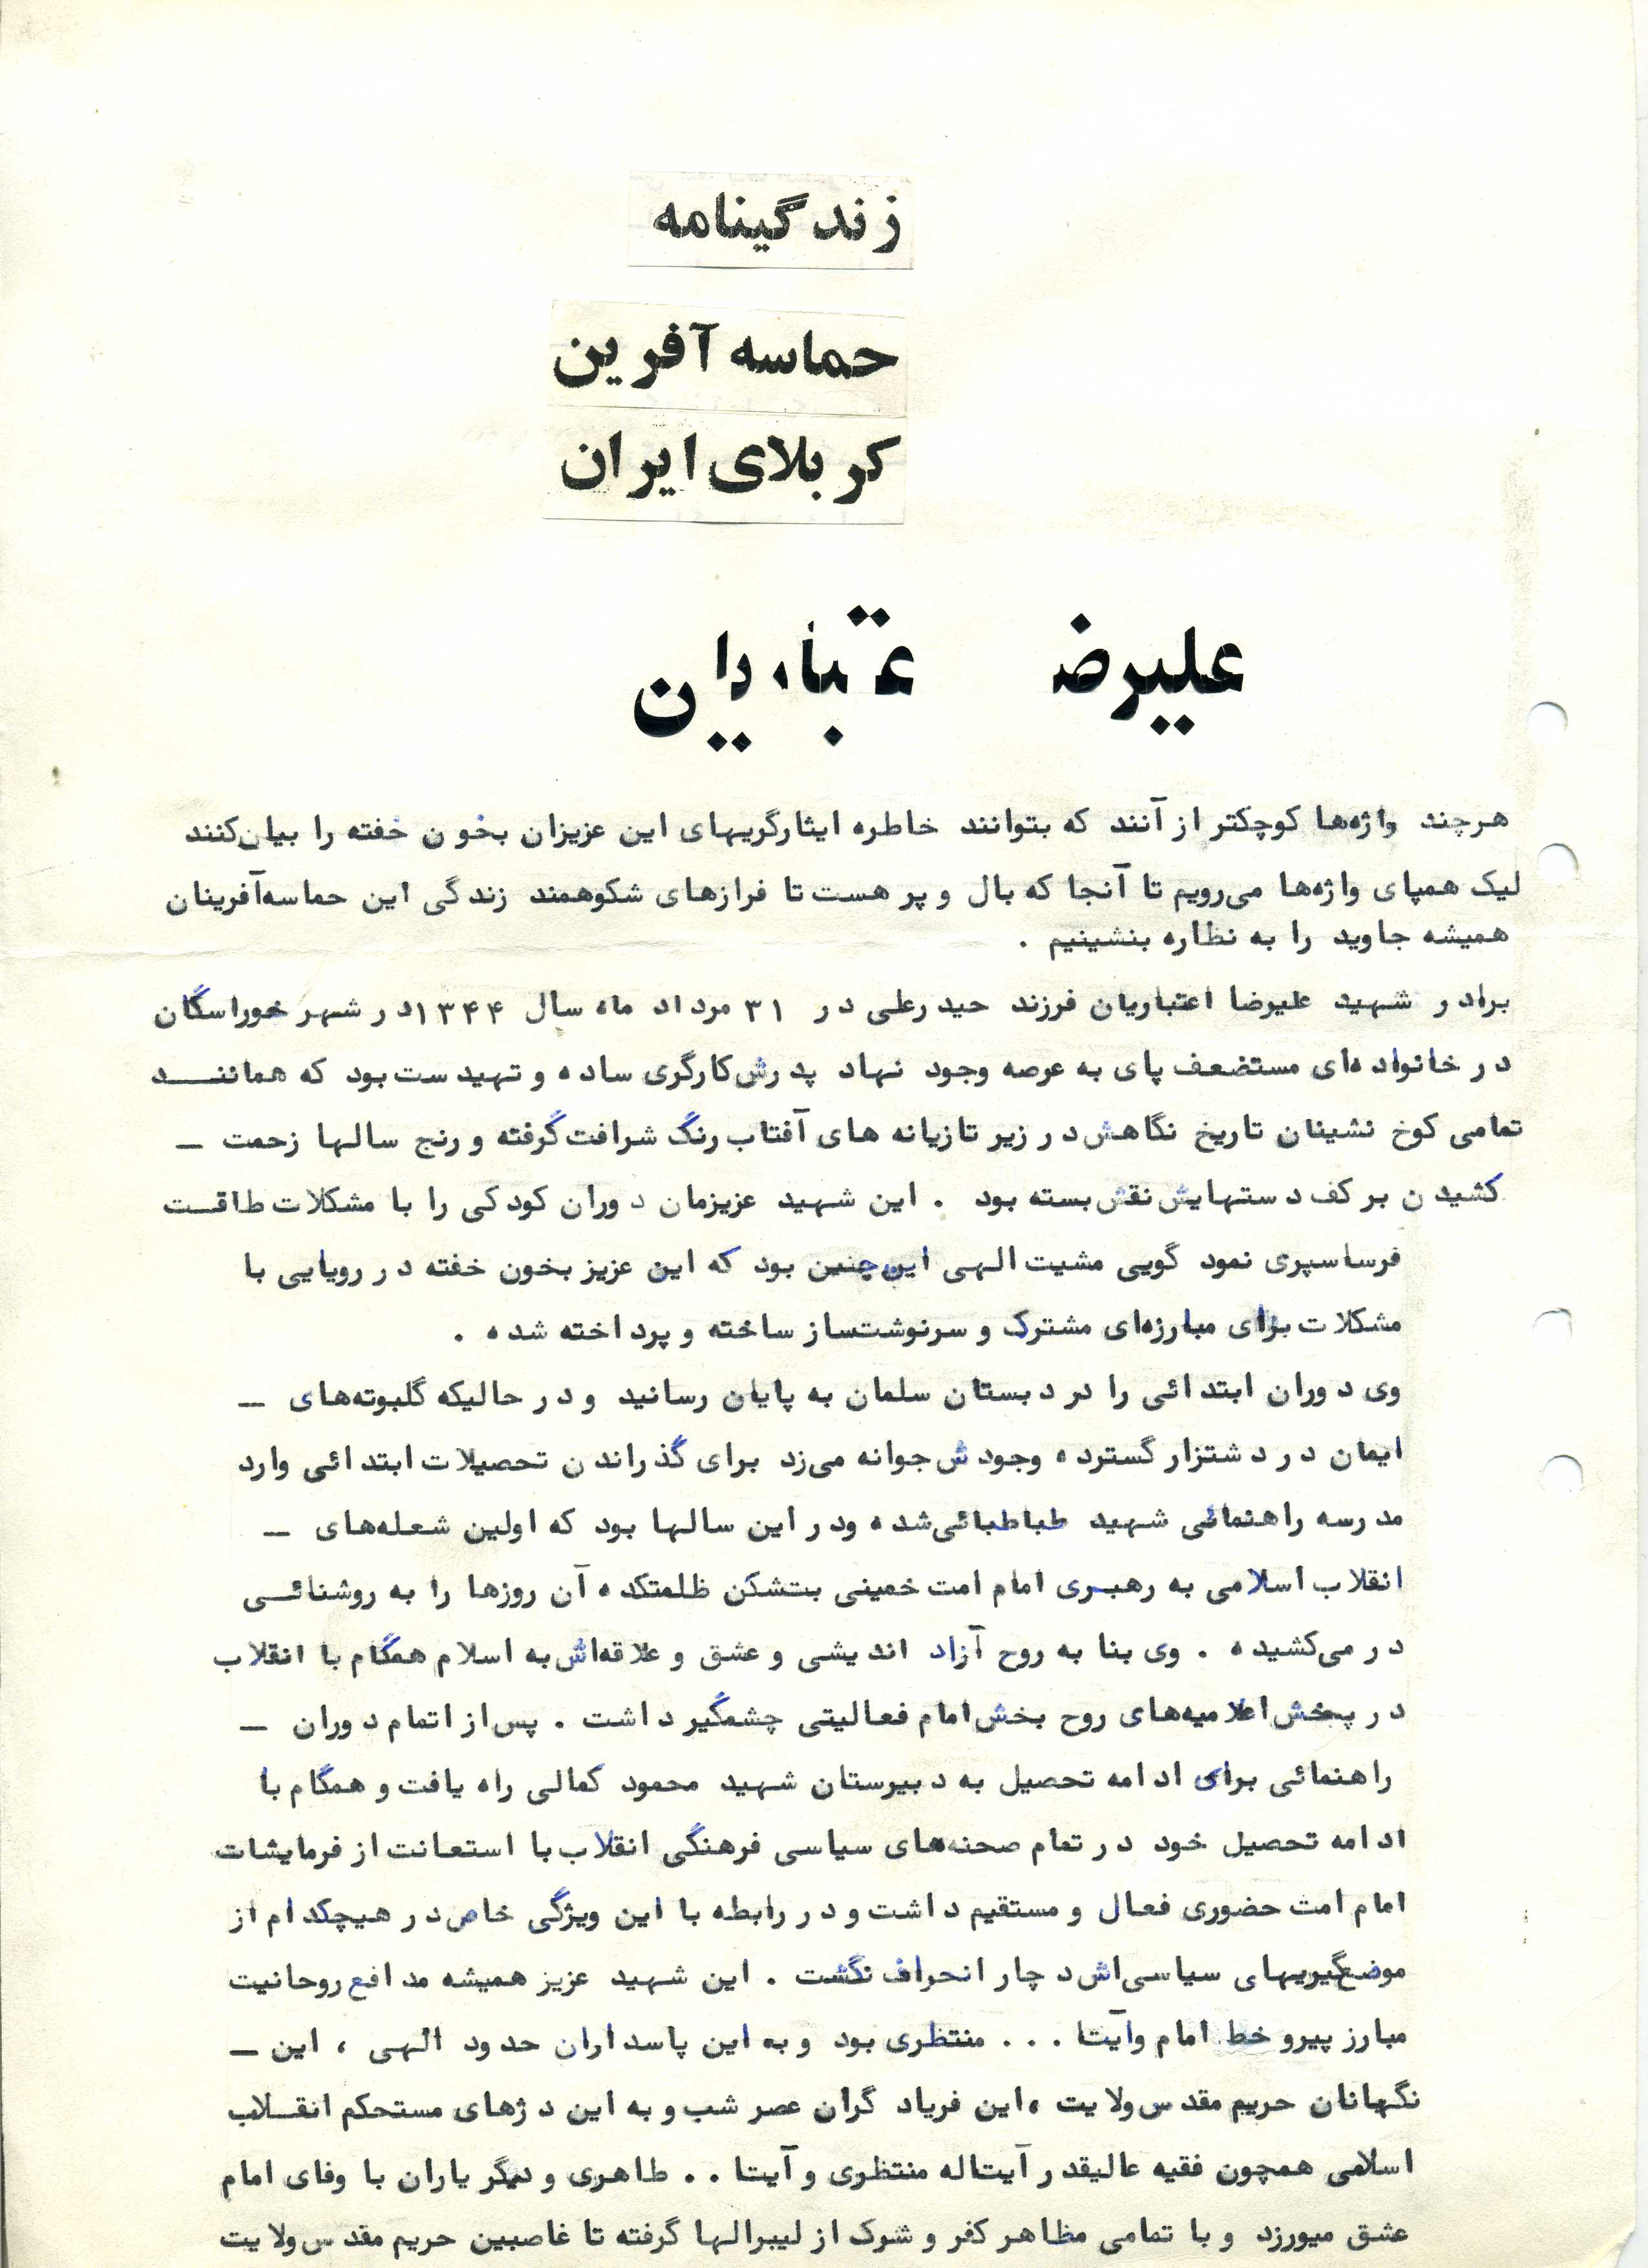 زندگینامه
حماسه آفرین
کربلای ایران
علیرضا اعتباریان
هرچند واژه‌ها کوچکتر از آنند که بتوانند خاطره ایثارگریهای این عزیزان بخون خفته را بیان‌کنند
لیک همپای واژه‌ها می‌رویم تا آنجا که بال و پر هست تا فرازهای شکوهمند زندگی این حماسه‌آفرینان
همیشه جاوید را به نظاره بنشینیم .
برادر شهید علیرضا اعتباریان فرزند حیدرعلی در ۳۱ مرداد ماه سال ۱۳۴۴ در شهر خوراسگان
در خانواده‌ای مستضعف پای به عرصه وجود نهاد پدرش کارگری ساده و تهیدست بود که هماننـــد
تمامی کوخ نشینان تاریخ نگاهش در زیر تازیانه های آفتاب رنگ شرافت گرفته و رنج سالها زحمت ـ
کشیدن بر کف دستهایش نقش بسته بود . این شهید عزیزمان دوران کودکی را با مشکلات طاقــت
فرسا سپری نمود گویی مشیت الهی این چنین بود که این عزیز بخون خفته در رویایی با
مشکلات برای مبارزه‌ای مشترک و سرنوشت‌ساز ساخته و پرداخته شده .
وی دوران ابتدائی را در دبستان سلمان به پایان رسانید و در حالیکه گلبوته‌های ـ
ایمان در دشتزار گسترده وجودش جوانه می‌زد برای گذراندن تحصیلات ابتدائی وارد
مدرسه راهنمائی شهید طباطبائی شده ودر این سالها بود که اولین شعله‌های ـ
انقلاب اسلامی به رهبـری امام امت خمینی بت‌شکن ظلمتکده آن روزها را به روشنائــی
در می‌کشیده . وی بنا به روح آزاد اندیشی و عشق و علاقه‌اش به اسلام همگام با انقلاب
در پخش اعلامیه‌های روح بخش امام فعالیتی چشمگیر داشت . پس از اتمام دوران ـ
راهنمائی برای ادامه تحصیل به دبیرستان شهید محمود کمالی راه یافت و همگام با
ادامه تحصیل خود در تمام صحنه‌های سیاسی فرهنگی انقلاب با استعانت از فرمایشات
امام امت حضوری فعال و مستقیم داشت و در رابطه با این ویژگی خاص در هیچکدام از
موضع‌گیریهای سیاسی‌اش دچار انحراف نگشت . این شهید عزیز همیشه مدافع روحانیت
مبارز پیرو خط امام وآیتا . . . منتظری بود و به این پاسداران حدود الهی ، این ـ
نگهبانان حریم مقدس ولایت ،این فریاد گران عصر شب و به این دژهای مستحکم انقــلاب
اسلامی همچون فقیه عالیقدر آیت‌اله منتظری و آیتا . . طاهری و دیگر یاران با وفای امام
عشق میورزد و با تمامی مظاهر کفر و شرک از لیبرالها گرفته تا غاصبین حریم مقدس ولایت